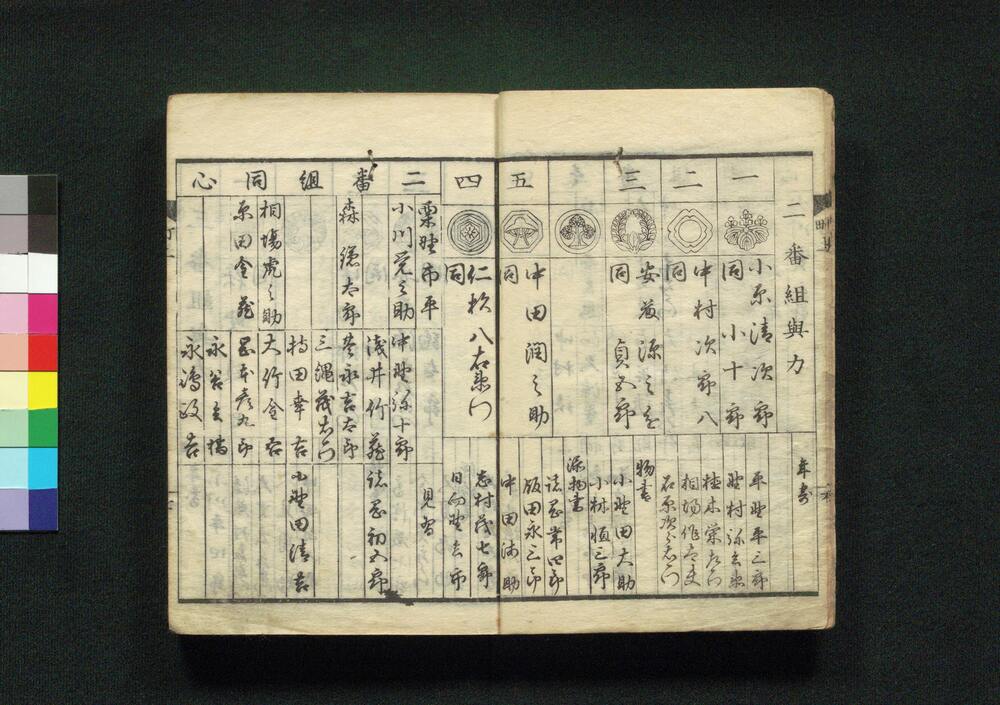 二番組與力
一
小原清次郎
同 小十郎
二
中村次郎八
同
三
安藤源之進
同 貞五郎
五
中田潤之助
同
四
仁杉八右衛門
同
年寄
平野平三郎
野村弥去衛
桂木栄左門
相場作右
石原次右門
物書
小野田大助
小林恒三郎
添物書
諸岡常四郎
飯田永三郎
中田清助
志村茂七郎
日向野去郎
二番組同心
粟野市平
小川覚之助
森 徳太郎
相場虎之助
原田金蔵
中野弥十郎
浅井竹蔵
冨永吉太郎
三縄茂右門
持田幸吉
大竹金吉
岡本彦九郎
永嶋政吉
見習
諸岡初五郎
小野田清吉